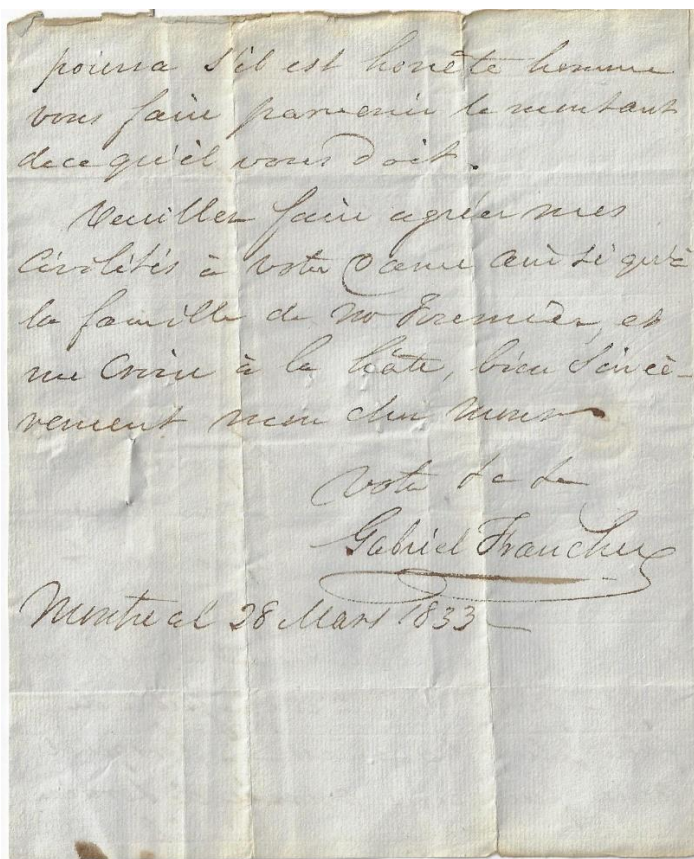 pourra s'il est honête homme
vous faire parvenir le montant
de ce qu'il vous doit.
Veuillez faire agréer mes
Civilités à votre Dame ainsi qu'à
la famille de Mr
me Croire à la hâte, bien Sincè-
rement mon cher Monsr
votre
Gabriel Franchere
Montreal 28 Mars 1833